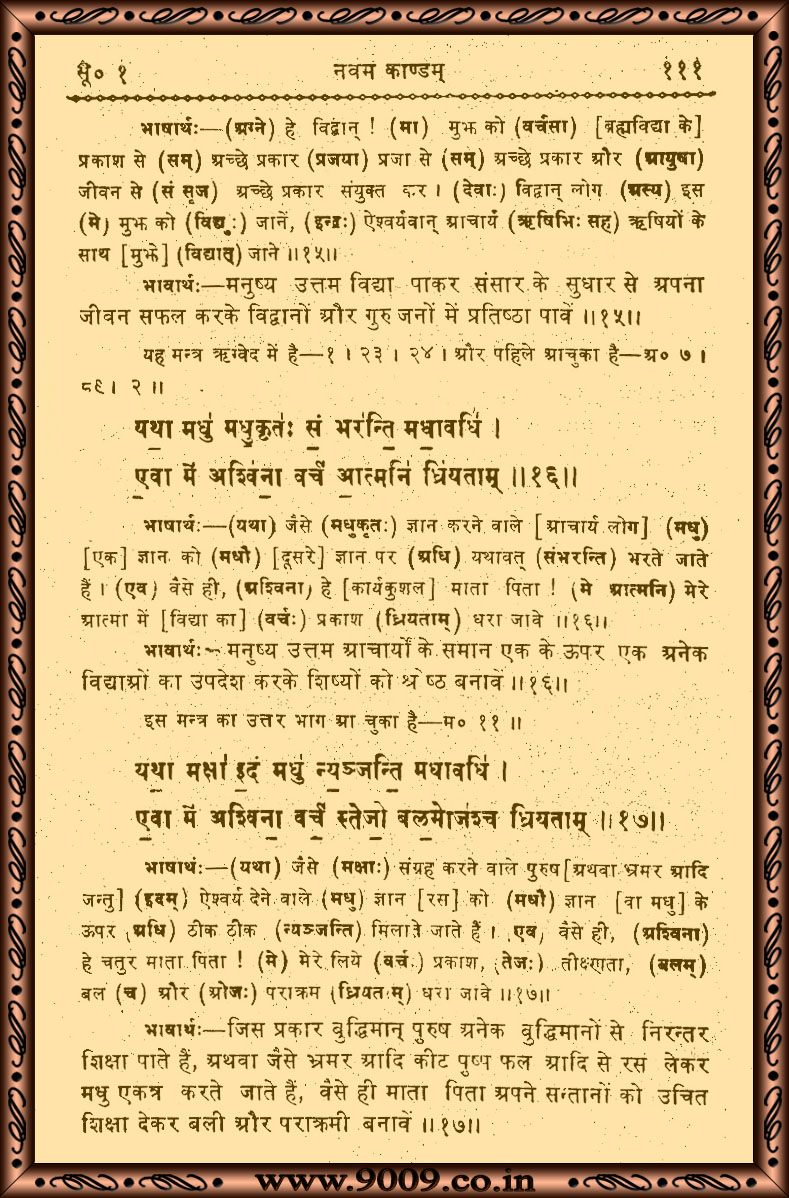 सू० १ नवमं काण्डम् १११
भाषार्थः—(अग्ने) हे विद्वान् ! (मा) मुझ को (वर्चसा) [ब्रह्मविद्या के]
प्रकाश से (सम्) अच्छे प्रकार (प्रजया) प्रजा से (सम्) अच्छे प्रकार और (आयुषा)
जीवन से (सं सृज) अच्छे प्रकार संयुक्त कर । (देवाः) विद्वान् लोग (अस्य) इस
(मे) मुझ को (विद्युः) जानें, (इन्द्रः) ऐश्वर्यवान् आचार्य (ऋषिभिः सह) ऋषियों के
साथ [मुझे] (विद्यात्) जाने ॥१५॥
भावार्थः—मनुष्य उत्तम विद्या पाकर संसार के सुधार से अपना
जीवन सफल करके विद्वानों और गुरु जनों में प्रतिष्ठा पावें ॥१५॥
यह मन्त्र ऋग्वेद में है—१ । २३ । २४ । और पहिले आचुका है—अ० ७ ।
८९ । २ ॥
यथा॒ मधु॑ मधु॒कृतः॑ सं॒ भर॑न्ति॒ मधा॒वधि॑ ।
ए॒वा मे॑ अश्वि॑ना॒ वर्च॑ आ॒त्मनि॑ ध्रियताम् ॥१६॥
भाषार्थः—(यथा) जैसे (मधुकृतः) ज्ञान करने वाले [आचार्य लोग] (मधु)
[एक] ज्ञान को (मधौ) [दूसरे] ज्ञान पर (अधि) यथावत् (संभरन्ति) भरते जाते
हैं । (एव) वैसे ही, (अश्विना) हे [कार्यकुशल] माता पिता ! (मे आत्मनि) मेरे
आत्मा में [विद्या का] (वर्चः) प्रकाश (ध्रियताम्) धरा जावे ॥१६॥
भावार्थः—मनुष्य उत्तम आचार्यों के समान एक के ऊपर एक अनेक
विद्याओं का उपदेश करके शिष्यों को श्रेष्ठ बनावें ॥१६॥
इस मन्त्र का उत्तर भाग आ चुका है—म० ११ ॥
यथा॒ मक्षा॑ इ॒दं मधु॑ न्य॒ञ्जन्ति॒ मधावधि॑ ।
ए॒वा मे॑ अश्विना॒ वर्च॒ स्तेजो॒ बल॒मोज॑श्च ध्रियताम् ॥१७॥
भाषार्थः—(यथा) जैसे (मक्षाः) संग्रह करने वाले पुरुष [अथवा भ्रमर आदि
जन्तु] (इदम्) ऐश्वर्य देने वाले (मधु) ज्ञान [रस] को (मधौ) ज्ञान [वा मधु] के
ऊपर (अधि) ठीक ठीक (न्यञ्जन्ति) मिलाते जाते हैं । (एव) वैसे ही, (अश्विना)
हे चतुर माता पिता ! (मे) मेरे लिये (वर्चः) प्रकाश, (तेजः) तीक्ष्णता, (बलम्)
बल (च) और (ओजः) पराक्रम (ध्रियताम्) धरा जावे ॥१७॥
भावार्थः—जिस प्रकार बुद्धिमान् पुरुष अनेक बुद्धिमानों से निरन्तर
शिक्षा पाते हैं, अथवा जैसे भ्रमर आदि कीट पुष्प फल आदि से रस लेकर
मधु एकत्र करते जाते हैं, वैसे ही माता पिता अपने सन्तानों को उचित
शिक्षा देकर बली और पराक्रमी बनावें ॥१७॥
www.9009.co.in